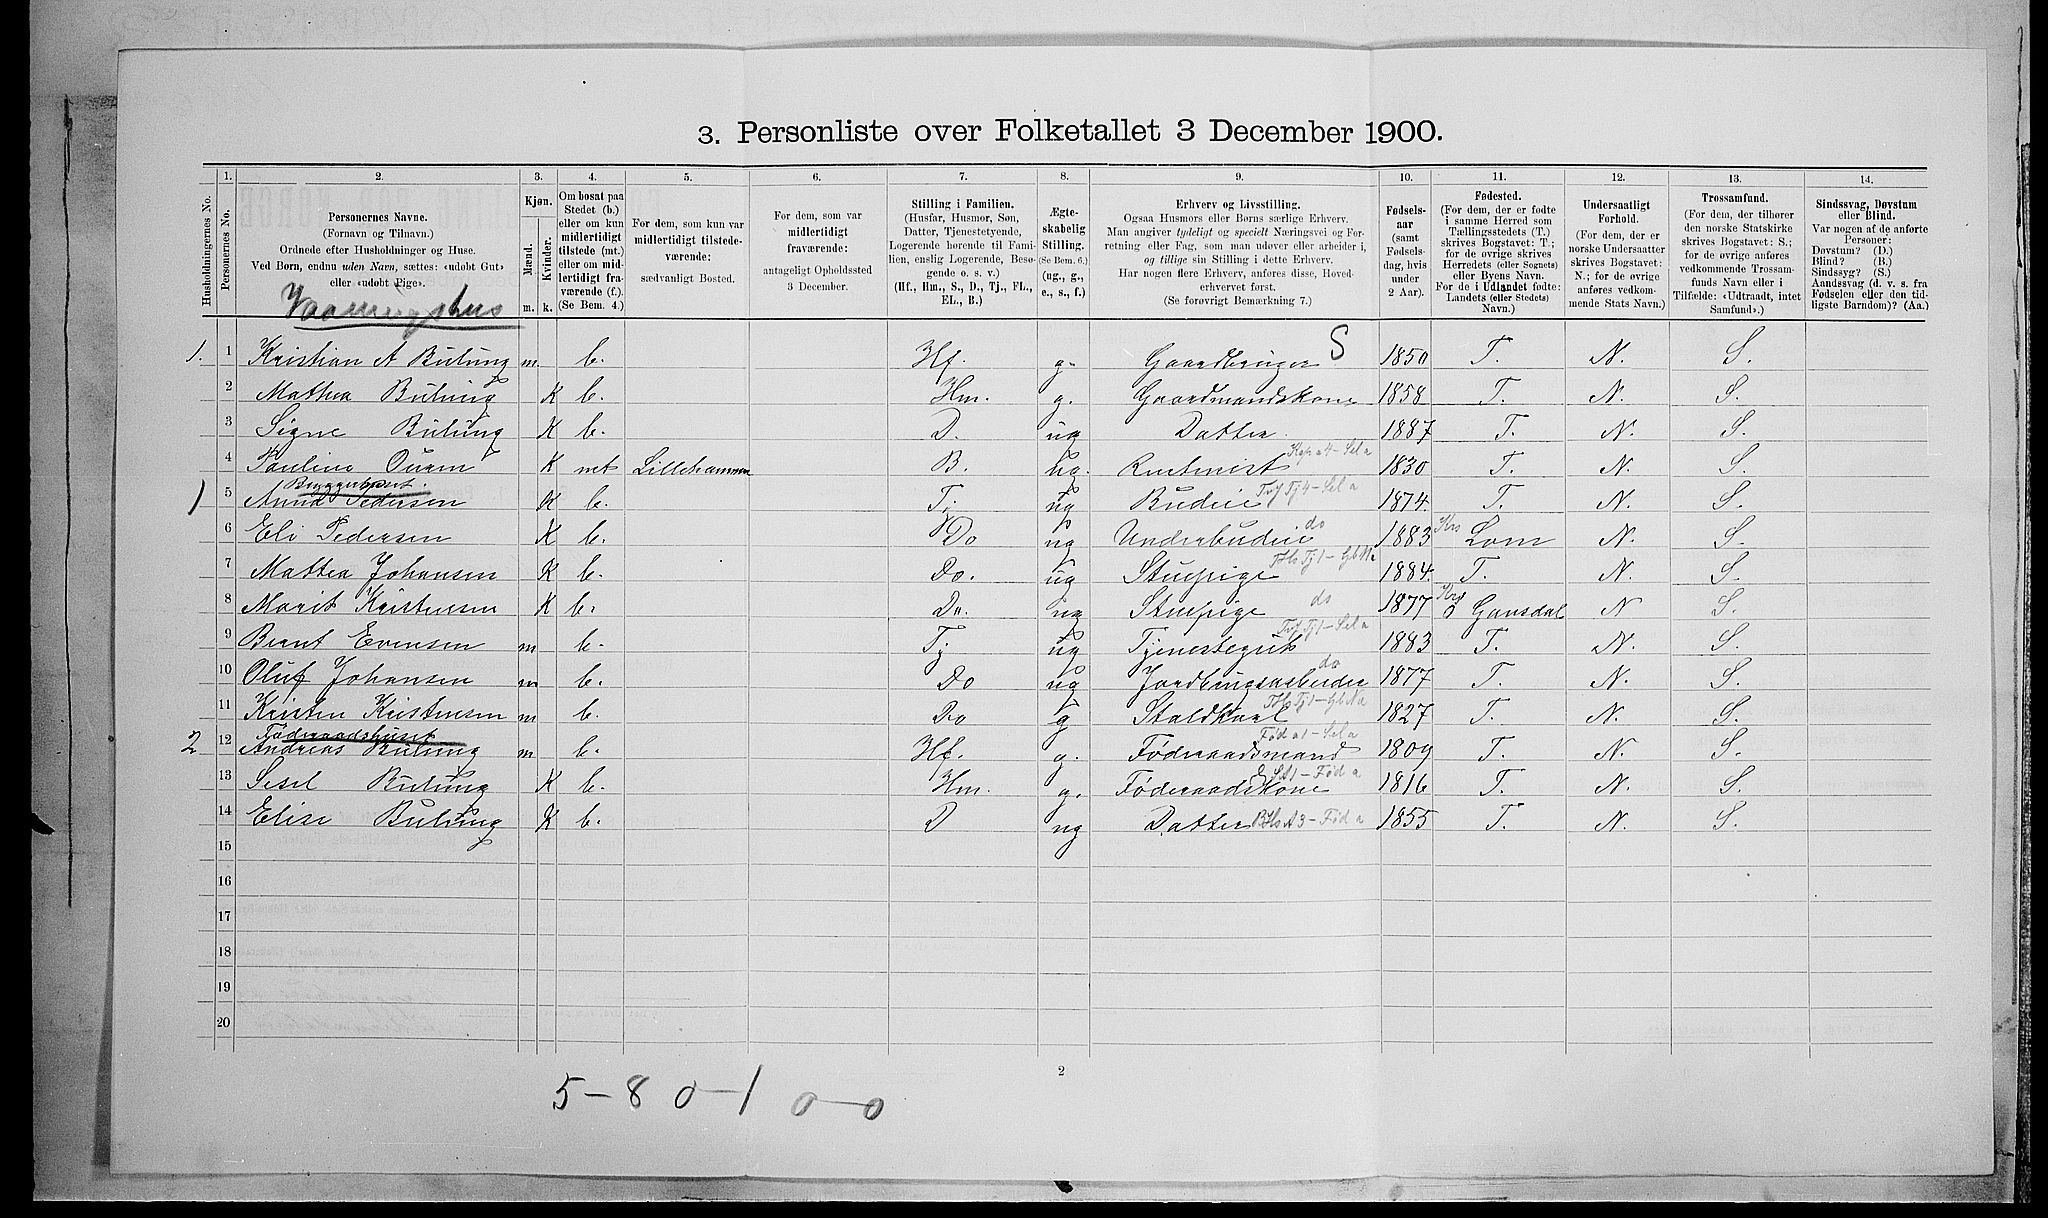 3. Personliste over Folketallet 3 December 1900.
1. 2. 3. 4. 5. 6. 7. 8. 9. 10. 11. 12. 13. 14.
Husholdningernes No.
Personernes No.
Personernes Navne.
(Fornavn og Tilnavn.)
Ordnede efter Husholdninger og Huse.
Ved Børn, endnu uden Navn, sættes: «udøbt Gut»
eller «udøbt Pige».
Kjøn.
Mænd.
Kvinder.
m. k.
Om bosat paa
Stedet (b.)
eller om kun
midlertidigt
tilstede (mt.)
eller om mid-
lertidigt fra-
værende (f.).
(Se Bem. 4.)
For dem, som kun var
midlertidigt tilstede-
værende:
sædvanligt Bosted.
For dem, som var
midlertidigt
fraværende:
antageligt Opholdssted
3 December.
Stilling i Familien.
(Husfar, Husmor, Søn,
Datter, Tjenestetyende,
Logerende hørende til Fami-
lien, enslig Logerende, Besø-
gende o. s. v.)
(Hf., Hm., S., D., Tj., FL.,
EL., B.)
Ægte-
skabelig
Stilling.
(Se Bem. 6.)
(ug., g.,
e., s., f.)
Erhverv og Livsstilling.
Ogsaa Husmors eller Børns særlige Erhverv.
Man angiver tydeligt og specielt Næringsvei og For-
retning eller Fag, som man udøver eller arbeider i,
og tillige sin Stilling i dette Erhverv.
Har nogen flere Erhverv, anføres disse, Hoved-
erhvervet først.
(Se forøvrigt Bemærkning 7.)
Fødsels-
aar
(samt
Fødsels-
dag, hvis
under
2 Aar).
Fødested.
(For dem, der er fødte
i samme Herred som
Tællingsstedets (T.)
skrives Bogstavet: T.;
for de øvrige skrives
Herredets (eller Sognets)
eller Byens Navn.
For de i Udlandet fødte:
Landets (eller Stedets)
Navn.)
Undersaatligt
Forhold.
(For dem, der er
norske Undersaatter
skrives Bogstavet:
N.; for de øvrige
anføres vedkom-
mende Stats Navn.)
Trossamfund.
(For dem, der tilhører
den norske Statskirke
skrives Bogstavet: S.;
for de øvrige anføres
vedkommende Trossam-
funds Navn eller i
Tilfælde: «Udtraadt, intet
Samfund».)
Sindssvag, Døvstum
eller Blind.
Var nogen af de anførte
Personer:
Døvstum? (D.)
Blind? (B.)
Sindssyg? (S.)
Aandssvag (d. v. s. fra
Fødselen eller den tid-
ligste Barndom)? (Aa.)
Vaaningshus
1. 1 Kristian A Bulung m. b. Hf. g. Gaardbruger S 1850 T. N. S.
2 Mathea Bulung K b. Hm. g. Gaardmandskone 1858 T. N. S.
3 Signe Bulung K b. D. ug Datter. 1887 T. N. S.
4 Pauline Ourn K mt Lillehammer B. ug. Rentenist 1830 T. N. S.
1 Byggerhuset.
5 Anna Pedersen K b. Tj ug Budeie 1874. T. N. S.
6 Eli Pedersen K b. Do ug Underbudeie do 1883 Krs Lom N. S.
7 Mattea Johansen K b. Do. ug Stuepige 1884. T. N. S.
8 Marit Kristensen K b. Do. ug Stuepige do 1877 Krs Ø Gausdal N S.
9 Bernt Evensen m b. Tj ug Tjenestegut 1883 T. N. S.
10 Oluf Johansen m b. Do ug Jordbrugsarbeider do 1877 T. N. S.
11 Kristen Kristensen m b. Do g Staldkarl 1827 T. N. S.
2 Føderaadshuset
12 Andreas Bulung m b. Hf. g. Føderaadsmand Fød a1 - Sel a 1809 T. N. S.
13 Sesel Bulung K b. Hm. g. Føderaadskone 1816 T. N. S.
14 Elise Bulung K b. D ug Datter BHs A3 - Fød a 1855 T. N. S.
15
16
17
18
19
20
2
5 - 8 0 - 1 0 - 0